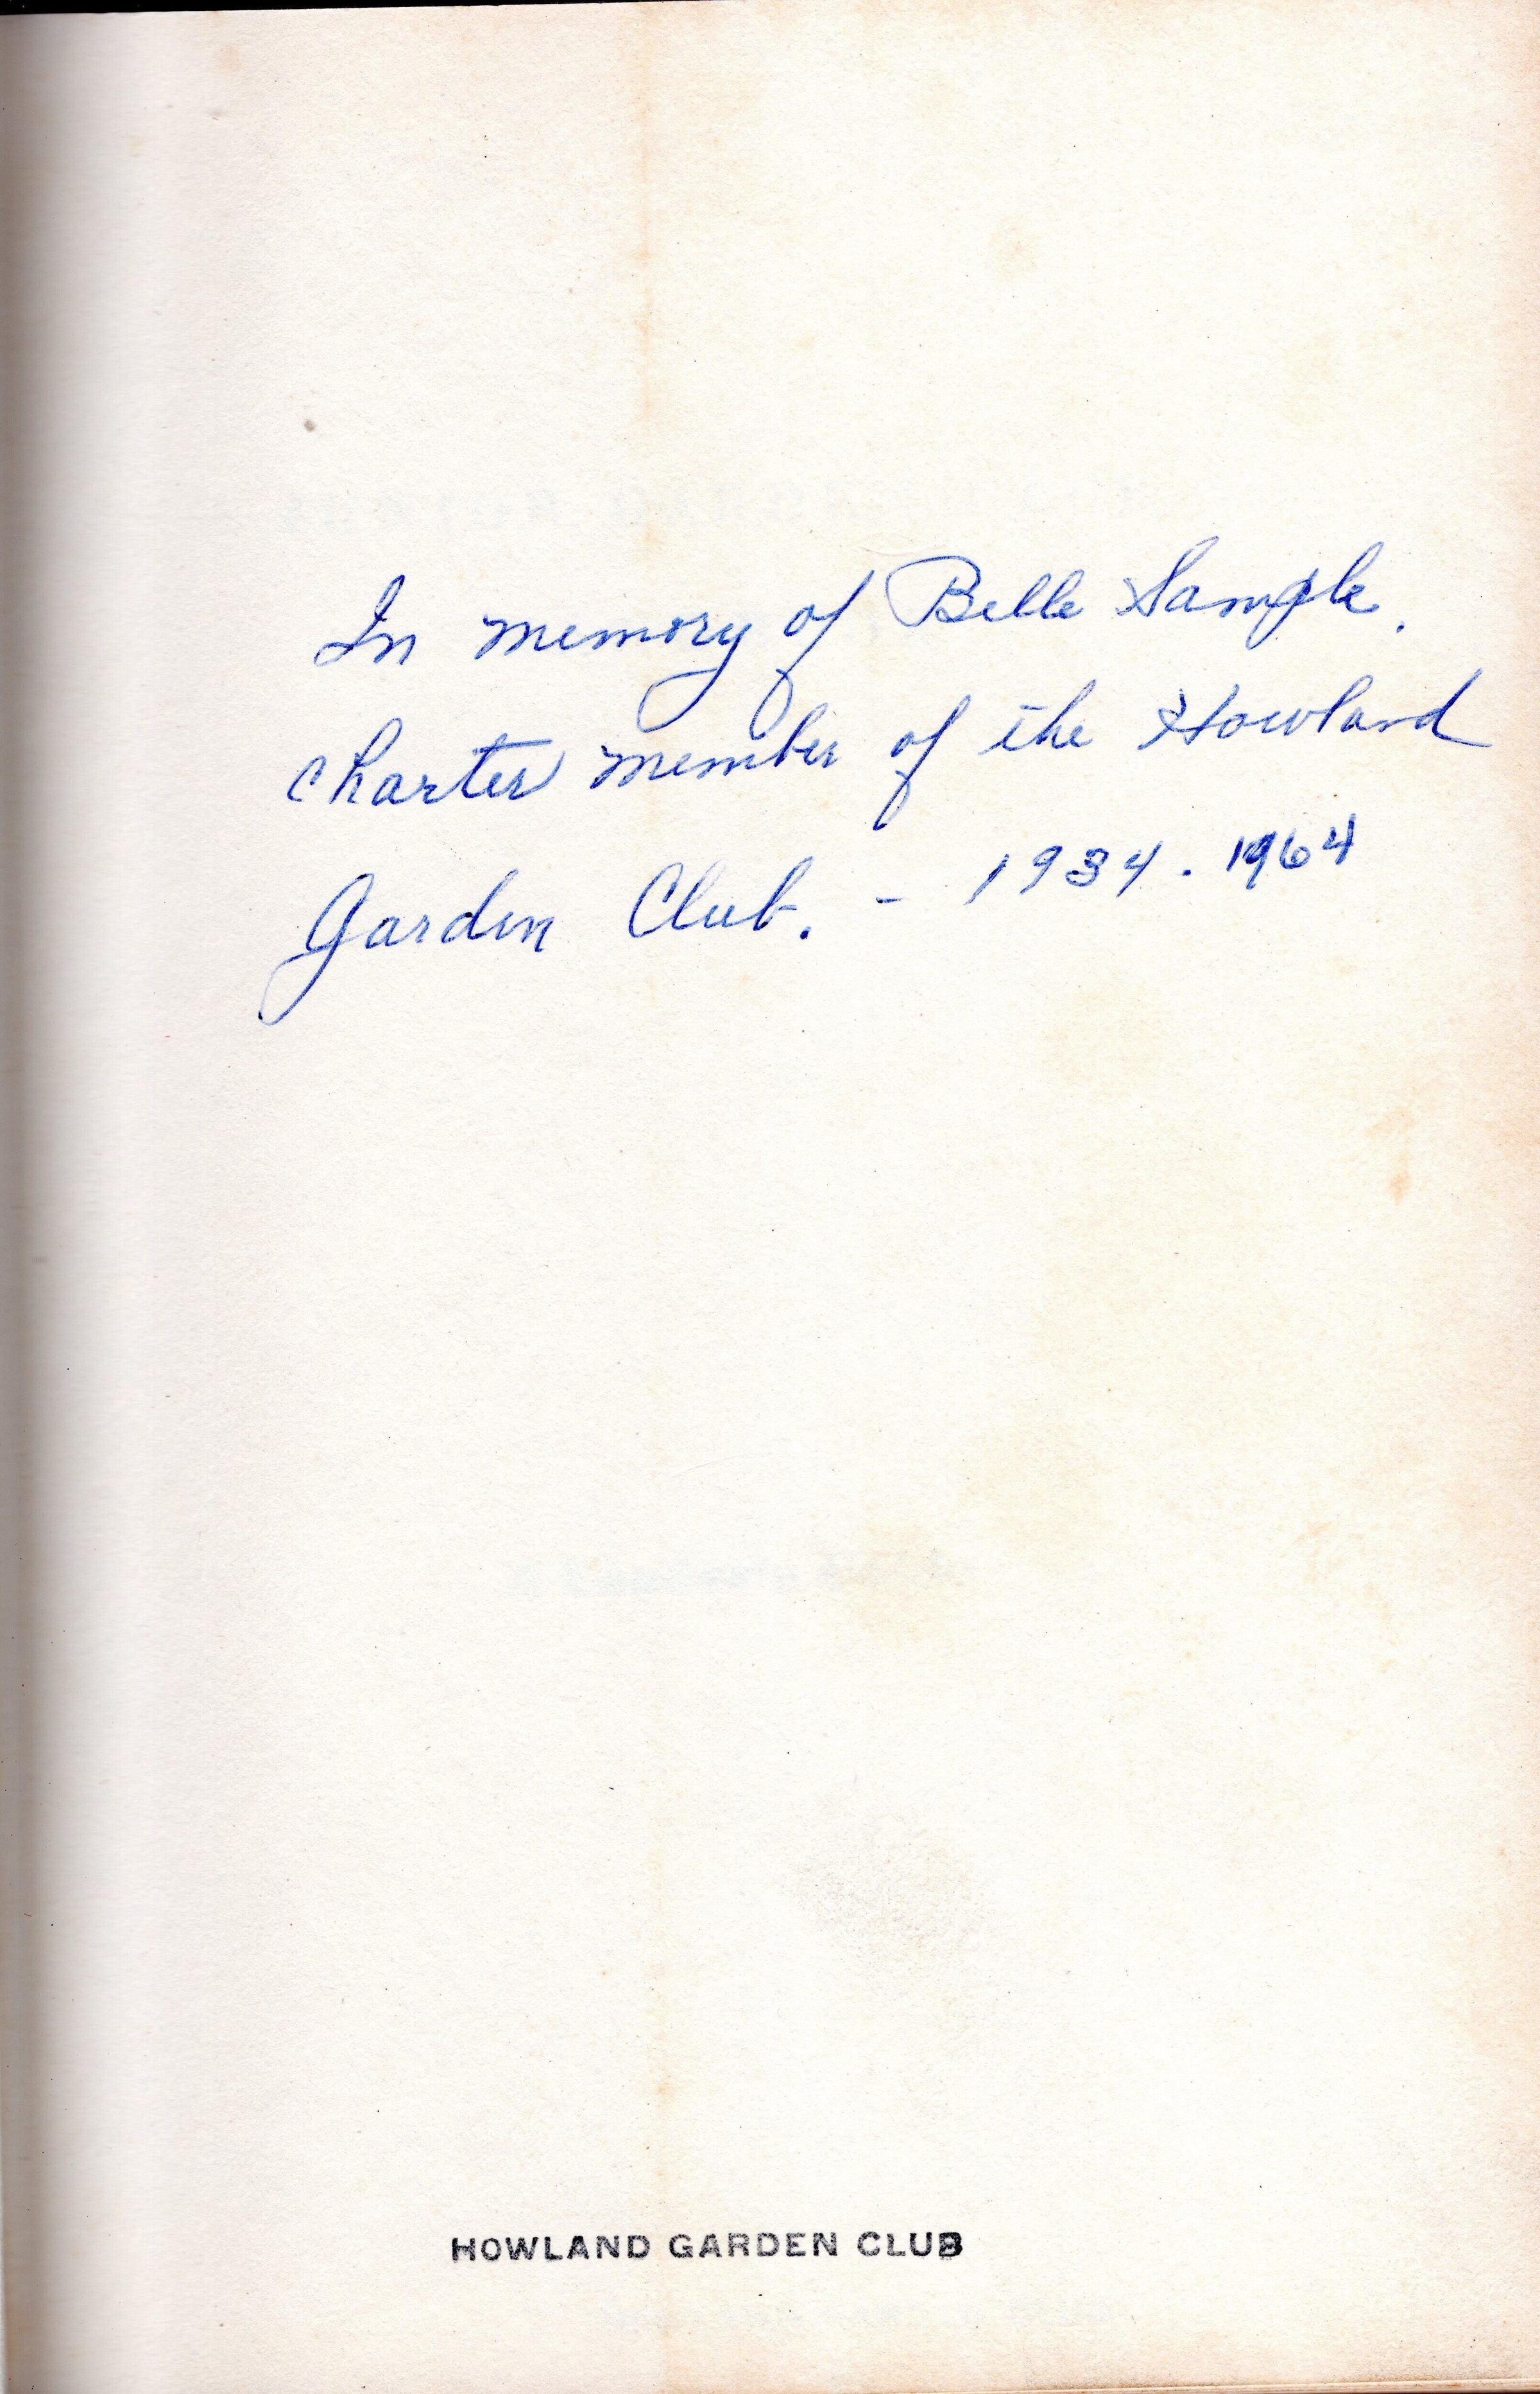 In memory of Belle Sample.
Charter member of the Howland
Garden Club. - 1934 - 1964
HOWLAND GARDEN CLUB